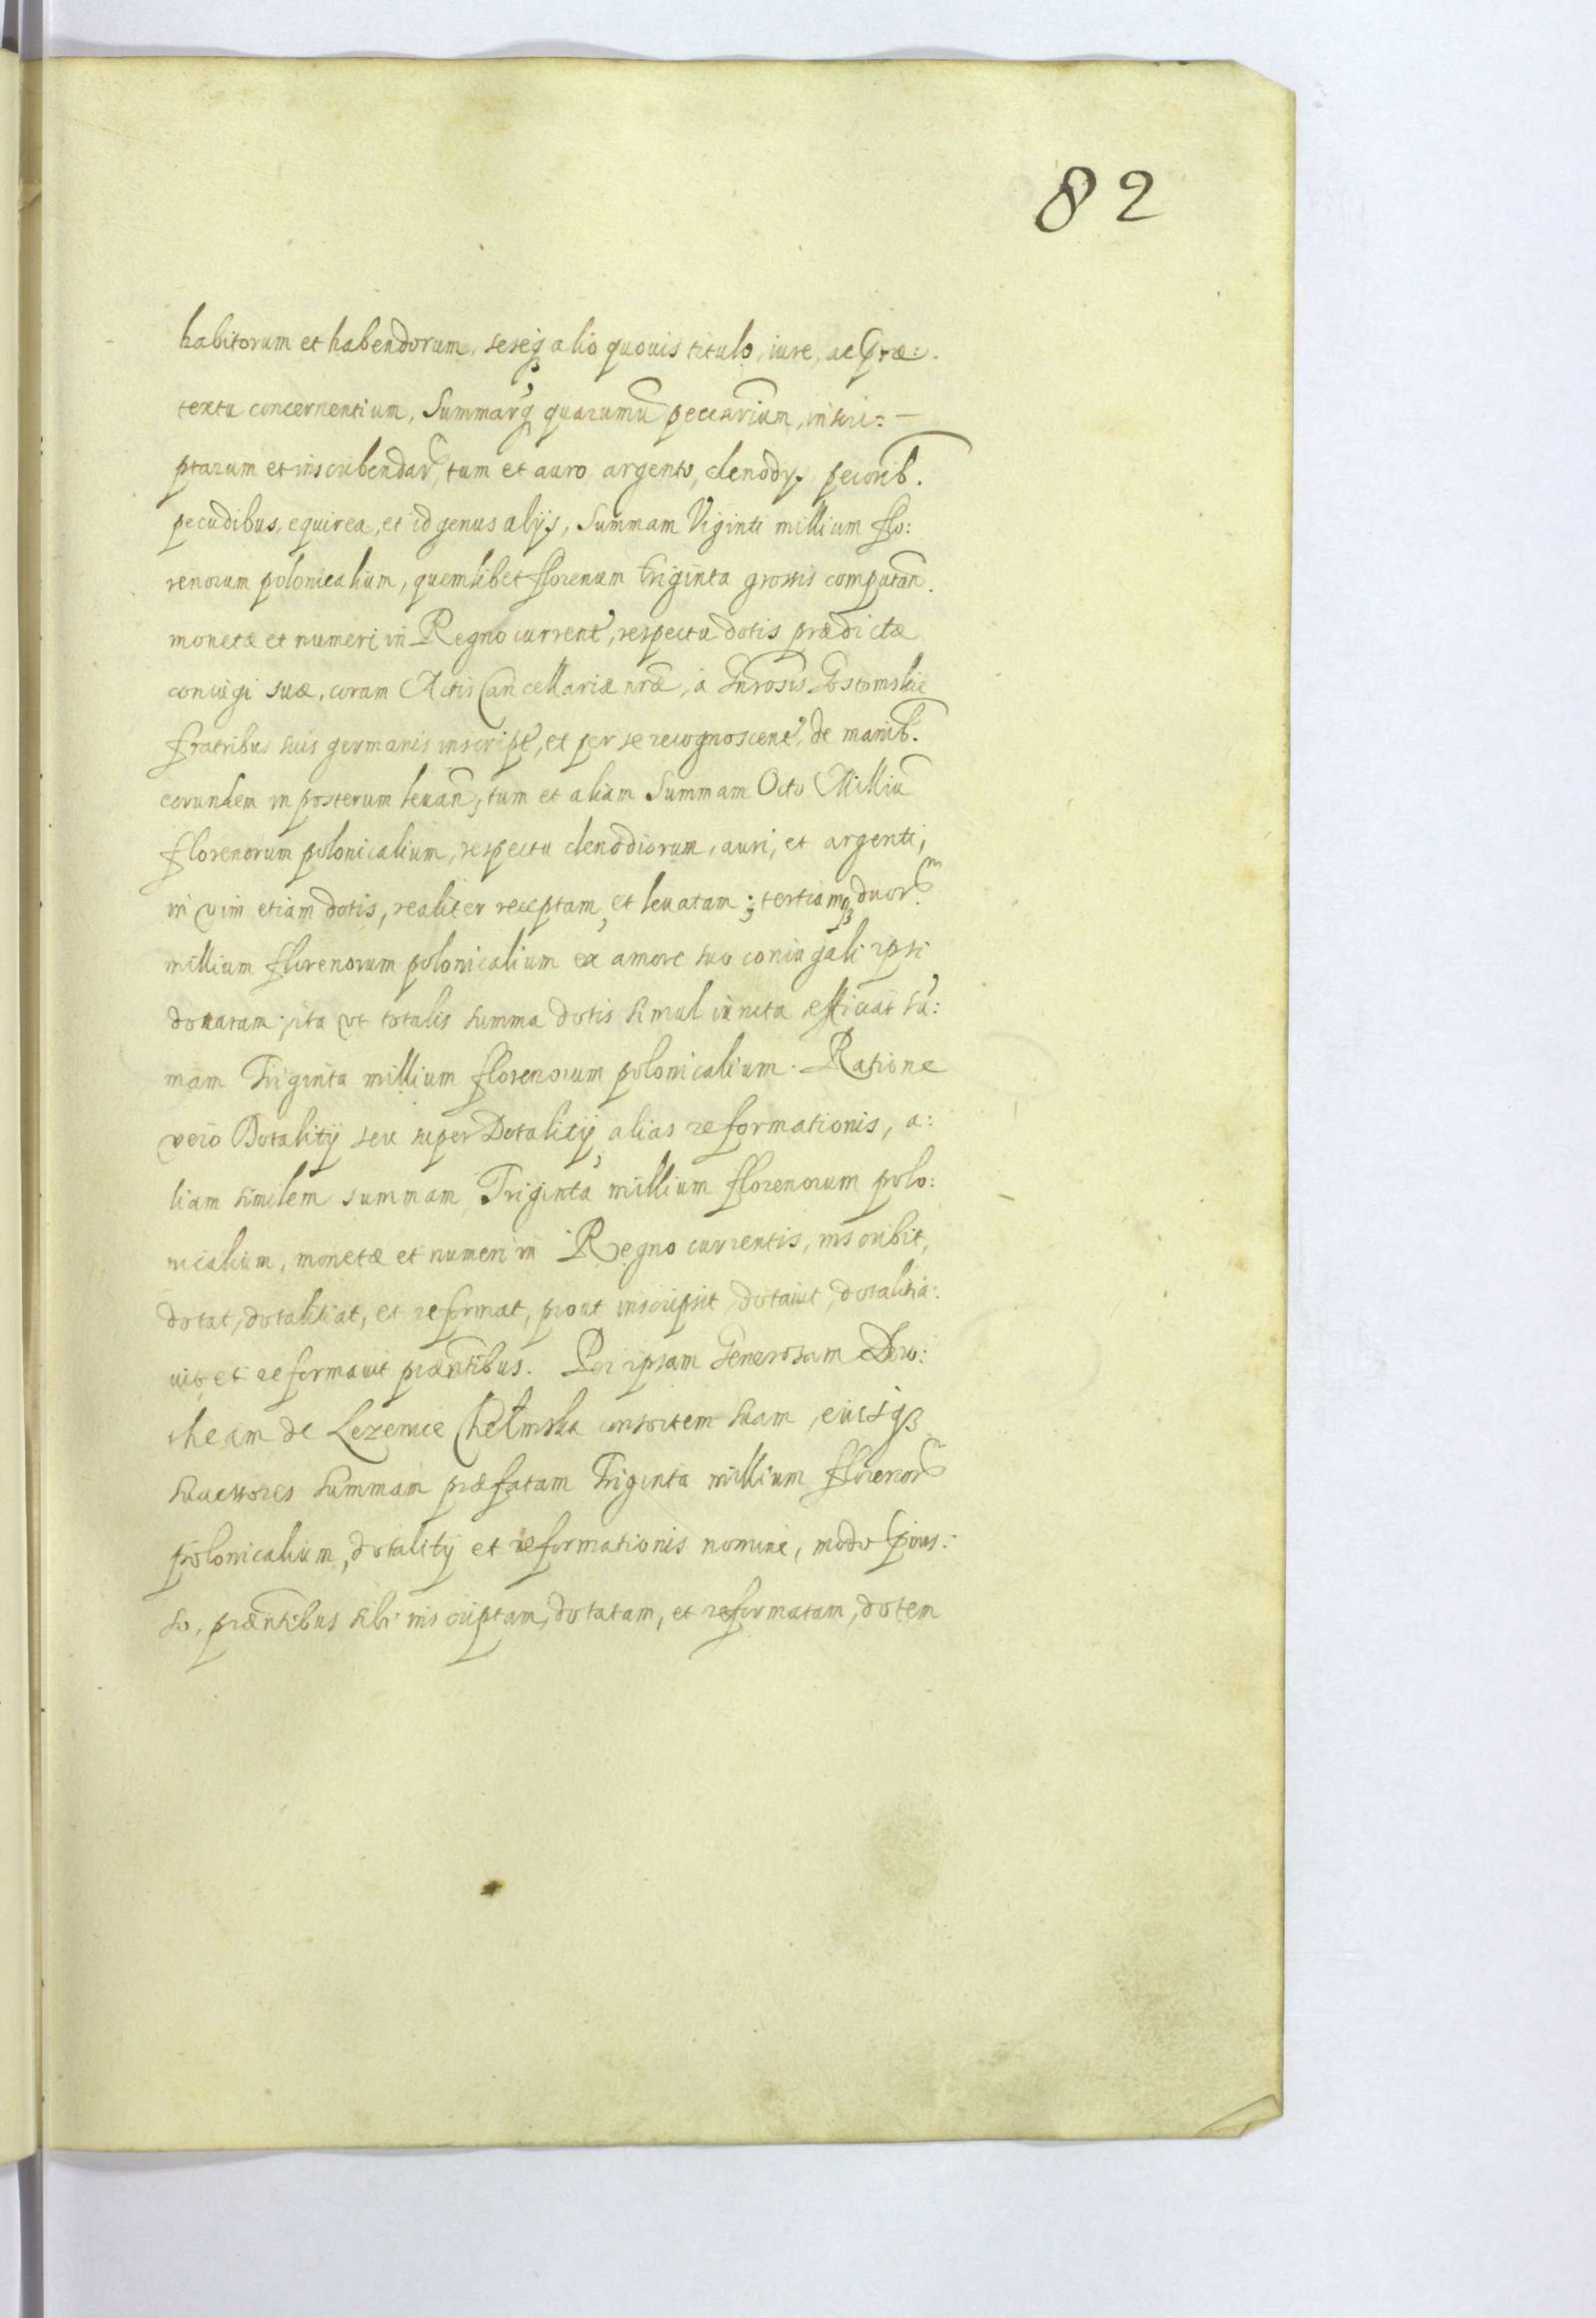 82
habitorum et habendorum, seseq3 alio quouis titulo, iure, ac præ:
textu concernentium, Summarq3 quarumu peccariam, inscri: —
ptarum et inscribendar, tum et auro argento, clenodys pecorib.
pecudibus, equirea, et id genus alijs, Summam Viginti millium flo:
renorum polonicalium, quemlibet florenum triginta grossis computan.
monetæ et numeri in Regno current, respectu dotis prædictæ
coniugi suæ, coram Actis Cancellariæ nræ, à Gnrosis Gostomskie
fratribus suis germanis inscript, et per se recognoscent, de manib.
eorundem in posterum leuan; tum et aliam Summam Octo Milliu
florenorum polonicalium, respectu clenodiorum, auri, et argenti,
in vim etiam dotis, realiter receptam, et leuatam; tertiamq3 duor
millium florenorum polonicalium ex amore suo coniugali ipsi
donatam; ita vt totalis summa dotis simul iuncta efficiat su:
mam Triginta millium florenorum polonicalium. Ratione
vero Dotalitij seu super Dotalitij alias reformationis, a:
liam similem summam Triginta millium florenorum polo:
nicalium, monetæ et numeri in Regno currentis, inscribit,
dotat, dotalitiat, et reformat, prout inscripsit, dotauit, dotalitia:
uit et reformauit præntibus. Per ipsam Generosam Doro:
theam de Lezenice Chełmska consortem suam, eiusq3
successores summam præfatam Triginta millium florenor
polonicalium, dotalitij et reformationis nomine, modo præus:
so, præntibus sibi inscriptam, dotatam, et reformatam, dotem